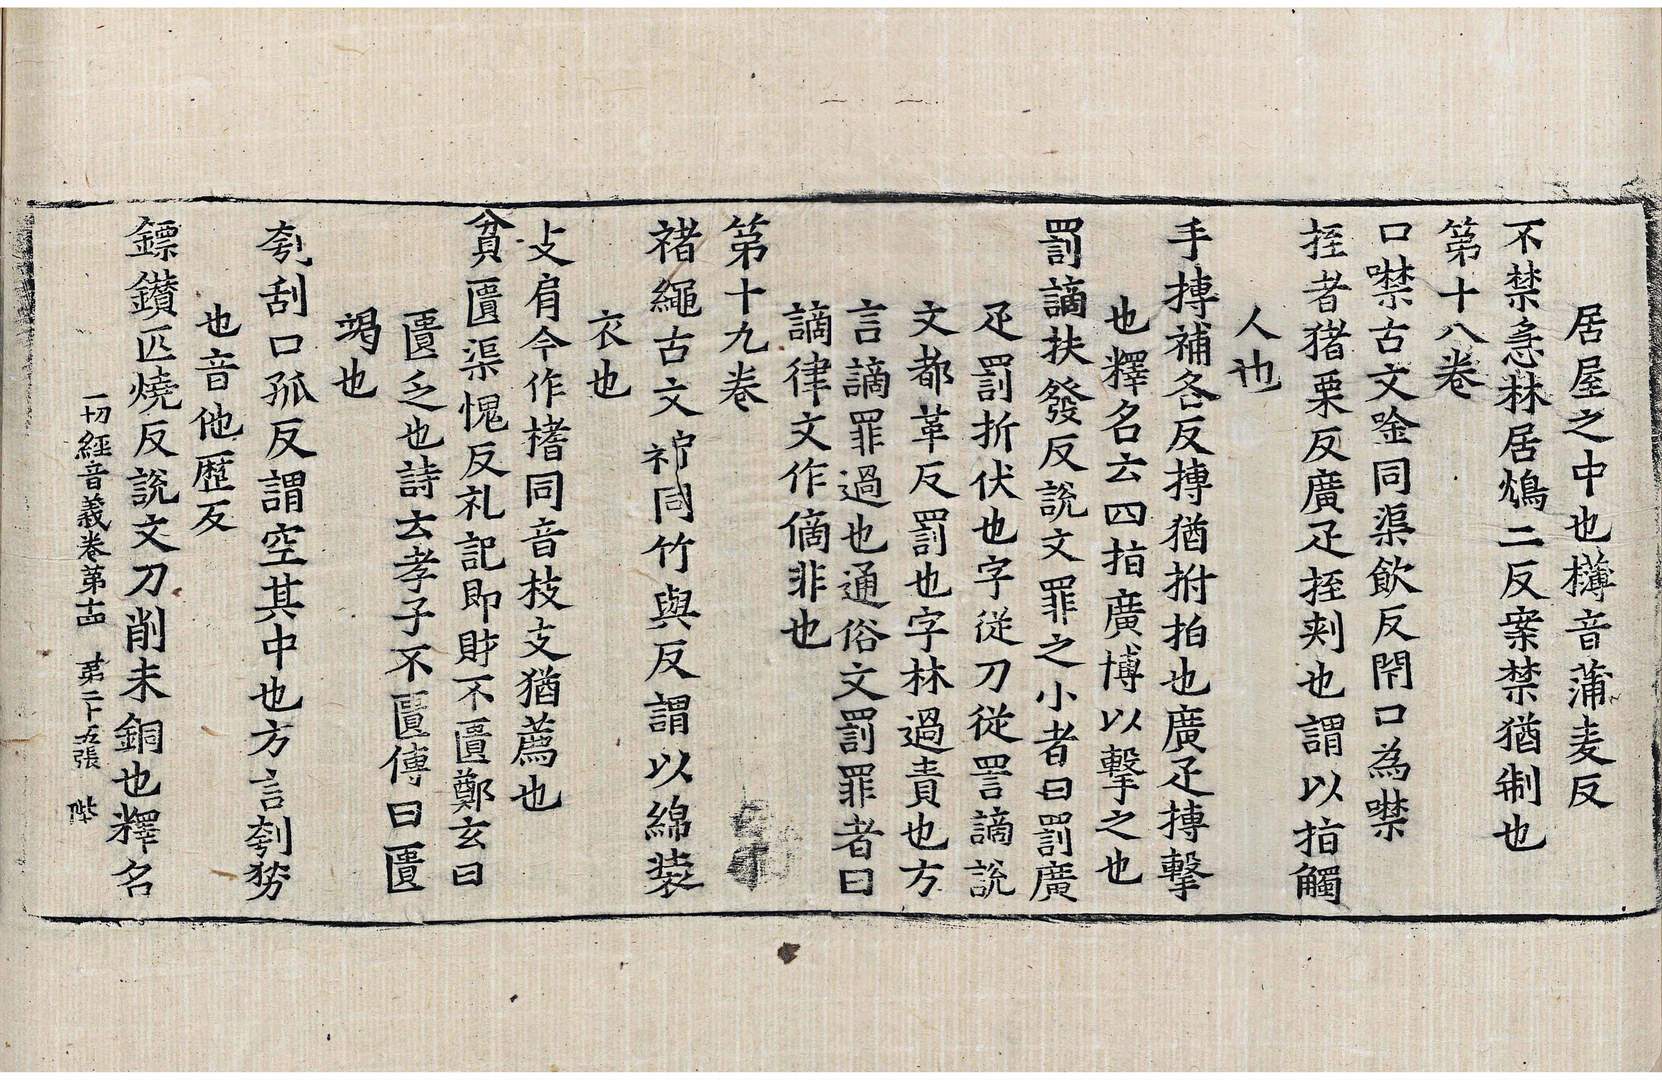 居屋之中也欂音蒲麦反
不禁急林居鴆二反案禁猶制也
第十八卷
口噤古文唫同渠飲反閇口為噤
挃者猪栗反廣疋挃刾也謂以指觸
人也
手搏補各反搏猶拊拍也廣疋搏擊
也釋名云四指廣博以擊之也
罰謫扶發反說文罪之小者曰罰廣
疋罰折伏也字從刀從詈謫說
文都革反罰也字林過責也方
言謫罪過也通俗文罰罪者曰
謫律文作僪非也
第十九卷
禇繩古文 同竹與反謂以綿裝
衣也
攴肩今作搘同音枝支猶薦也
貧匱渠愧反礼記即財不匱鄭玄曰
匱乏也詩云孝子不匱傳曰匱
竭也
刳刮口孤反謂空其中也方言刳剺
也音他歷反
鏢鑚匹燒反說文刀削末銅也釋名
一切經音義卷第十四 第二十五張